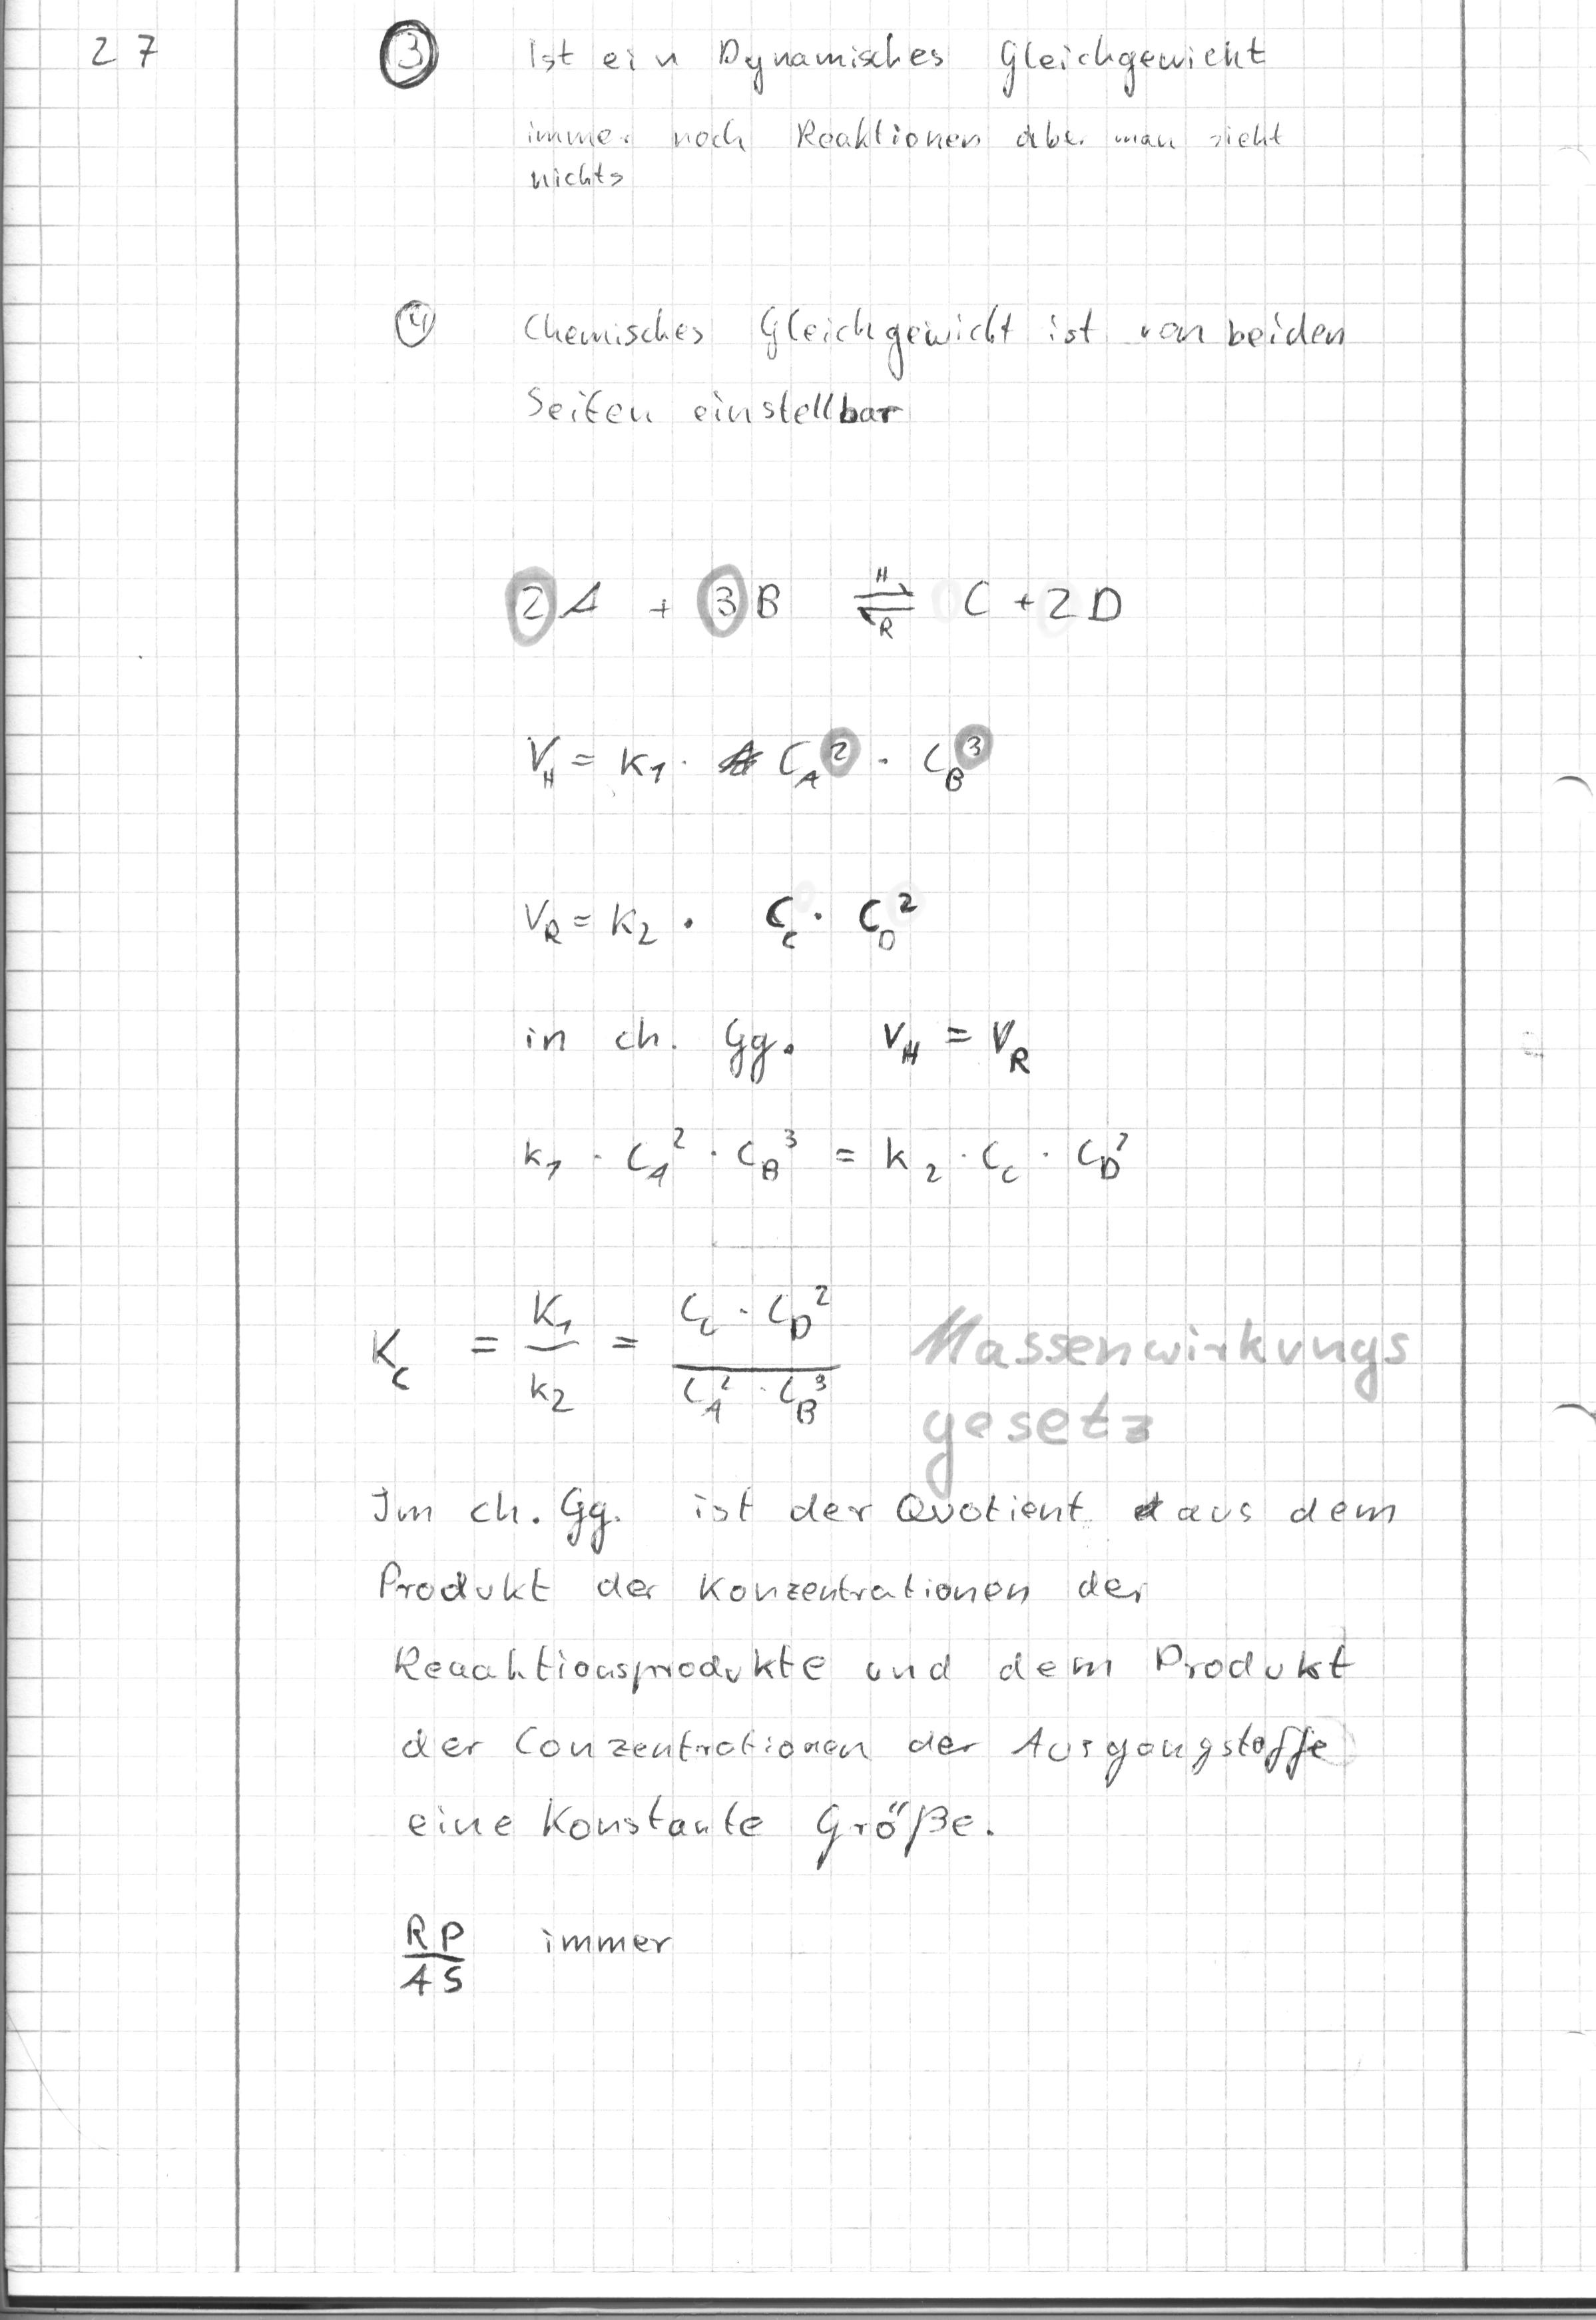 27
③ Ist ein Dynamisches Gleichgewicht
immer noch Reaktionen aber man sieht
nichts
④ Chemisches Gleichgewicht ist von beiden
Seiten einstellbar
2A + 3B ⇌ C + 2D
H
R
V_H = K₁ · C_A² · C_B³
V_R = K₂ · C_C · C_D²
in ch. Gg. V_H = V_R
k₁ · C_A² · C_B³ = k₂ · C_C · C_D²
K_C = K₁/k₂ = (C_C · C_D²)/(C_A² · C_B³) Massenwirkungs
gesetz
Im ch. Gg. ist der Quotient aus dem
Produkt der Konzentrationen der
Reaahtionsprodukte und dem Produkt
der Conzentrationen der Ausgangstoffe
eine Konstante Größe.
RP/AS immer